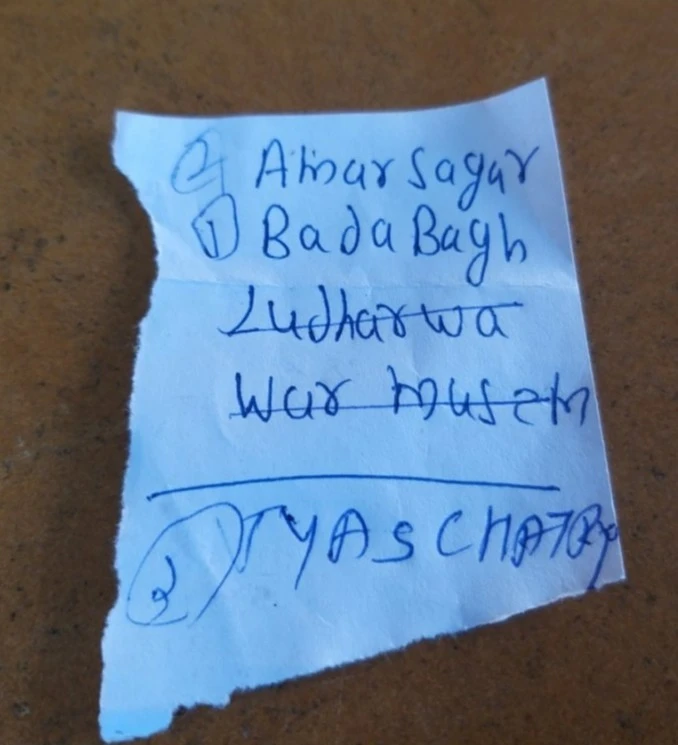 2 Amar Sagar
1 Bada Bagh
Ludharwa
War musem
3 VYAS CHATRY